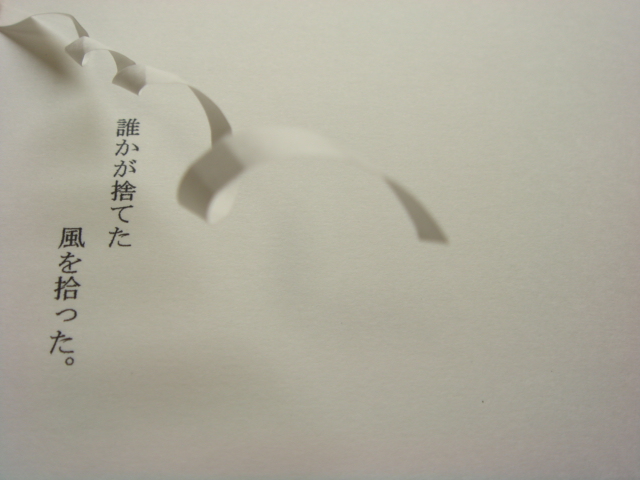 誰かが捨てた
風を拾った。